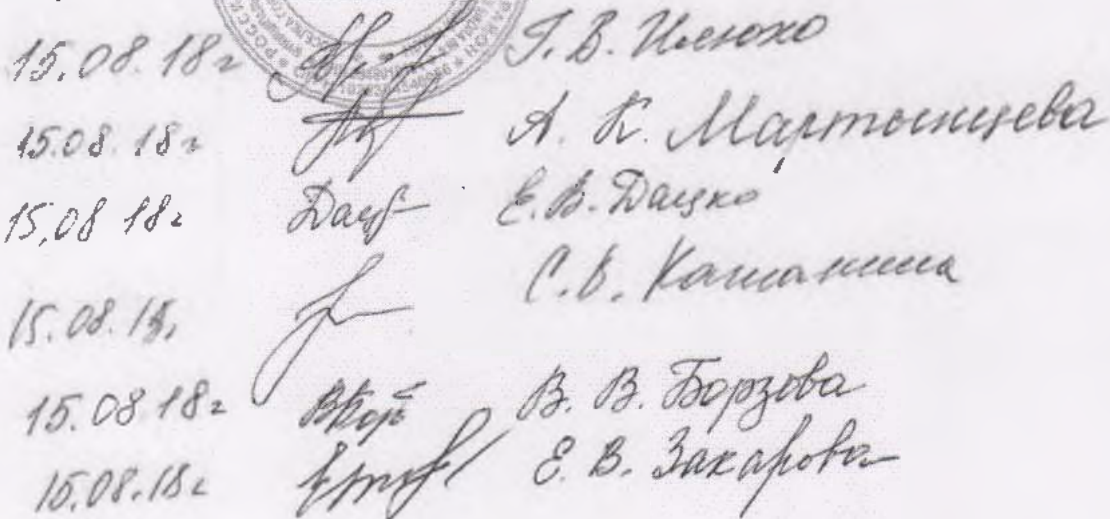 15.08.18г Т. В. Илюхо
15.08.18г А. К. Мартынцева
15.08 18г Дац Е. В. Дацко
С. В. Кашанина
15.08.18г
15.08.18г ВБор В. В. Борзова
15.08.18г Е. В. Захарова